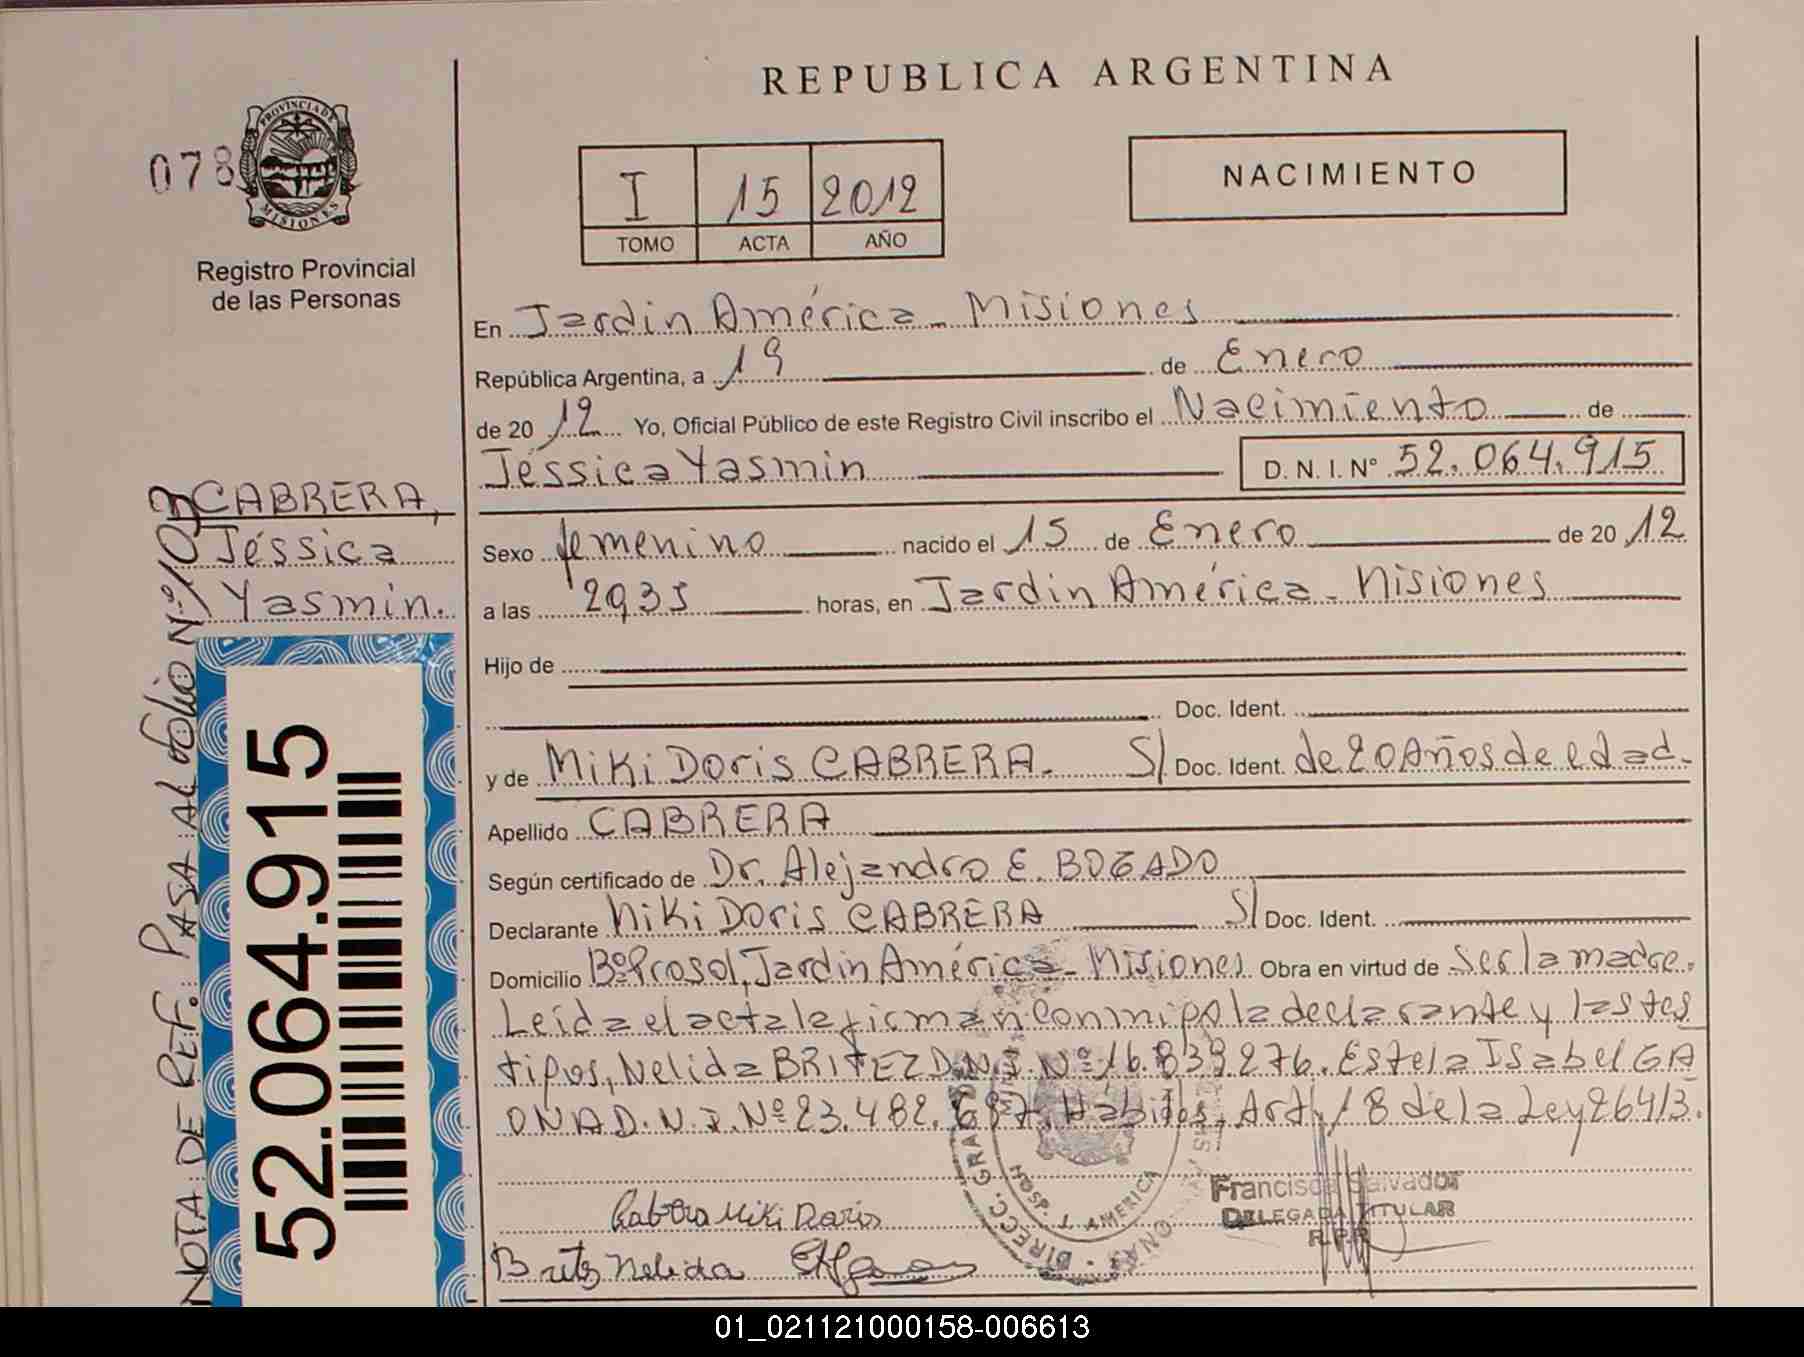 REPUBLICA ARGENTINA
078
PROVINCIA DE
MISIONES
Registro Provincial
de las Personas
I 15 2012
TOMO ACTA AÑO
NACIMIENTO
En Jardin América - Misiones
República Argentina, a 19 de Enero
de 2012 Yo, Oficial Público de este Registro Civil inscribo el Nacimiento de
Jéssica Yasmin D. N. I. Nº 52.064.915
CABRERA,
Jéssica
Yasmin.
Sexo femenino nacido el 15 de Enero de 2012
a las 2935 horas, en Jardin América - Misiones
Hijo de
Doc. Ident.
y de Miki Doris CABRERA. S/ Doc. Ident. de 20 Años de edad.-
Apellido CABRERA
Según certificado de Dr. Alejandro E. BOGADO
Declarante Miki Doris CABRERA S/ Doc. Ident.
Domicilio Bº Prosol, Jardin América - Misiones Obra en virtud de Ser la madre.
Leida el acta la firman conmigo la declarante y las tes
tigos, Nelida BRITEZ D.N.I. Nº 16.839.276. Estela Isabel GA
ONA D.N.I. Nº 23.482.687. Hábiles, Art. 18 de la Ley 26413.
Cabrera Miki Doris
Britez Nelida
Francisco Salvador
DELEGADA TITULAR
R.P.P.
DIRECC. GRAL
HOSP. J. AMERICA
NOTA DE REF. PASA AL FOLIO Nº 103
52.064.915
01_021121000158-006613